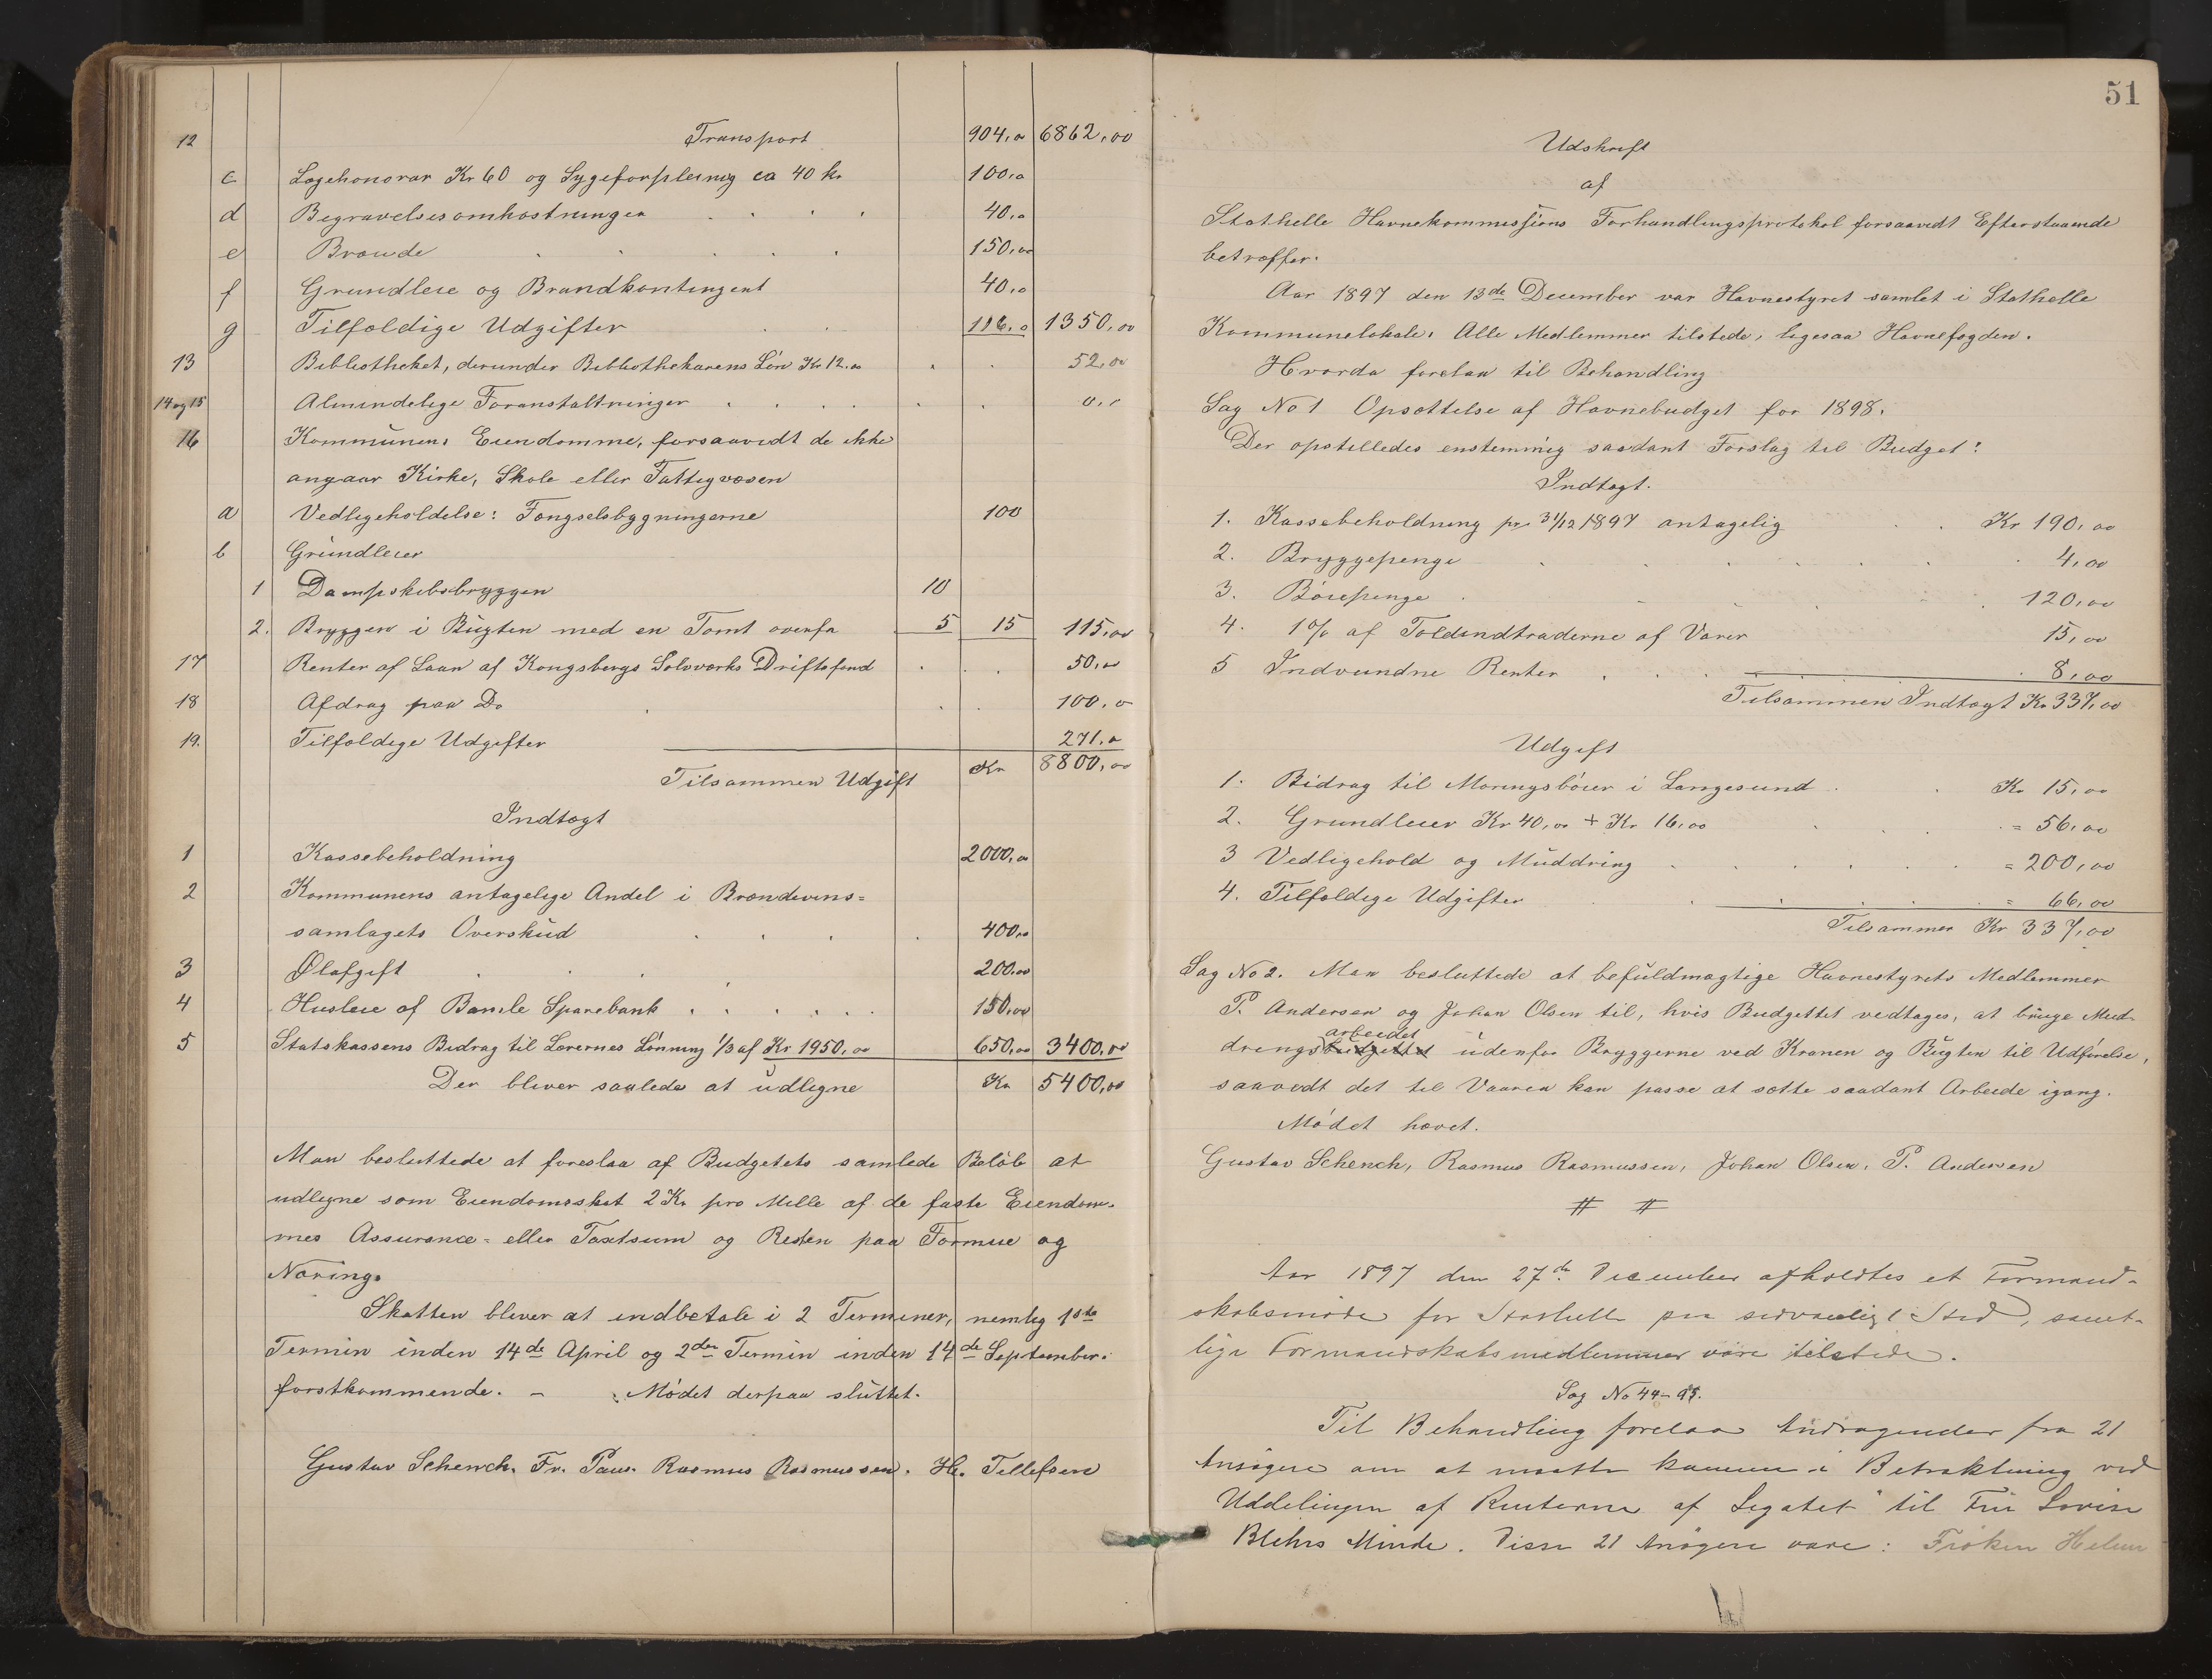 12 Transport 904,00 6862,00
c Lægehonorar Kr 60 og Sygeforpleining ca 40 kr 100,00
d Begravelsesomkostninger 40,00
e Brænde 150,00
f Grundleie og Brandkontingent 40,00
g Tilfældige Udgifter 116,00 1350,00
13 Bibliotheket, derunder Bibliothekarens Løn Kr 12.00 52,00
14 og 15 Almindelige Foranstaltninger 0.0
16 Kommunens Eiendomme, forsaavidt de ikke
angaar Kirke, Skole eller Fattigvæsen
a Vedligeholdelse: Fængselsbygningerne 100
b Grundleier
1 Dampskibsbryggen 10
2. Bryggen i Bugten med en Tomt ovenfor 5 15 115,00
17 Renter af Laan af Kongsbergs Sølvværks Driftsfond 50,00
18 Afdrag paa Do 100,00
19. Tilfældige Udgifter 271,00
Tilsammen Udgift Kr 8800,00
Indtægt
1 Kassebeholdning 2000,00
2 Kommunens antagelige Andel i Brændevins=
samlagets Overskud 400,00
3 Ølafgift 200,00
4 Husleie af Bamle Sparebank 150,00
5 Statskassens Bidrag til Lærernes Lønning 1/3 af Kr 1950,00 650,00 3400,00
Der bliver saaledes at udligne Kr 5400,00
Man besluttede at foreslaa af Budgetets samlede Beløb at
udligne som Eiendomsskat 2 Kr pro Mille af de faste Eiendom-
mes Assurance= eller Taxtsum og Resten paa Formue og
Næring.
Skatten bliver at indbetale i 2 Terminer, nemlig 1ste
Termin inden 14de April og 2den Termin inden 14de September
førstkommende. – Mødet derpaa sluttet.
Gustav Schenck. Fr. Paus. Rasmus Rasmussen. H. Tellefsen
51
Udskrift
af
Stathelle Havnekommissions Forhandlingsprotokol forsaavidt Efterstaaende
betræffer.
Aar 1897 den 13de December var Havnestyret samlet i Stathelle
Kommunelokale. Alle Medlemmer tilstede, ligesaa Havnefogden.
Hvorda forelaa til Behandling
Sag No 1 Opsættelse af Havnebudget for 1898.
Der opstilledes enstemmig saadant Forslag til Budget:
Indtægt.
1. Kassebeholdning pr 31/12 1897 antagelig Kr 190,00
2. Bryggepenge 4,00
3. Bøiepenge 120,00
4. 1% af Toldindtræderne af Varer 15,00
5 Indvundne Renter 8,00
Tilsammen Indtægt Kr 337,00
Udgift
1. Bidrag til Moringsbøier i Langesund Kr 15,00
2. Grundleier Kr 40,00 + Kr 16,00 = 56,00
3 Vedligehold og Muddring = 200,00
4. Tilfældige Udgifter = 66,00
Tilsammen Kr 337,00
Sag No 2. Man besluttede at befuldmægtige Havnestyrets Medlemmer
P. Andersen og Johan Olsen til, hvis Budgettet vedtages, at bringe Mud-
arbeidet
dringsbudgettet udenfor Bryggerne ved Kranen og Bugten til Udførelse,
saavidt det til Vaaren kan passe at sætte saadant Arbeide igang.
Mødet hævet.
Gustav Schenck, Rasmus Rasmussen, Johan Olsen, P. Andersen
# #
Aar 1897 den 27de December afholdtes et Formand-
skabsmøde for Stathelle paa sedvanligt Sted, samt-
lige Formandskabsmedlemmer vare tilstede.
Sag No 44-95.
Til Behandling forelaa Andragender fra 21
Ansøgere om at maatte komme i Betraktning ved
Uddelingen af Renterne af Legatet til Fru Lovise
Blehrs Minde. Disse 21 Ansøgere vare: Frøken Helene